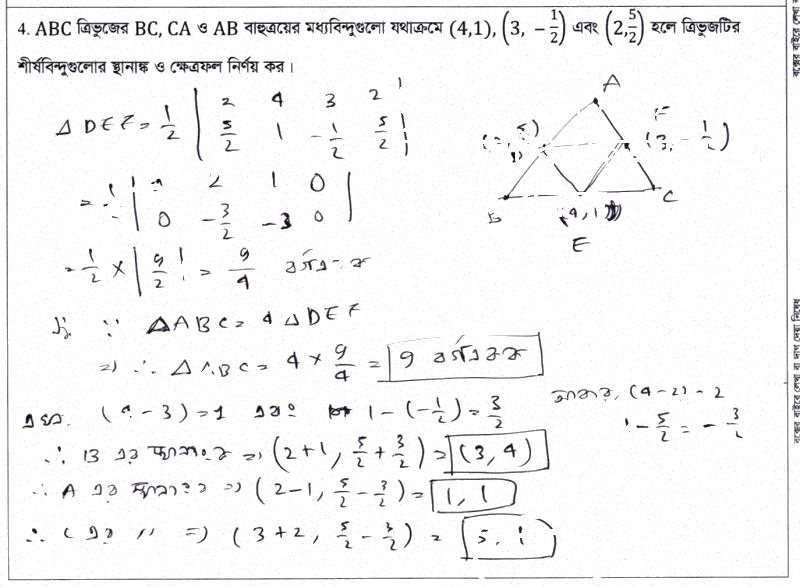 4. ABC ত্রিভুজের BC, CA ও AB বাহুত্রয়ের মধ্যবিন্দুগুলো যথাক্রমে (4,1), (3, -1/2) এবং (2, 5/2) হলে ত্রিভুজটির
শীর্ষবিন্দুগুলোর স্থানাঙ্ক ও ক্ষেত্রফল নির্ণয় কর।
Δ DEF = 1/2 | 2 4 3 2
5/2 1 -1/2 5/2 |
2 1 0
0 -3/2 -3 0 |
= 1/2 × | 9/2 | = 9/4
A
F
(3, -1/2)
B
C
(4,1)
E
∵ ΔABC = 4 Δ DEF
⇒ ∴ ΔABC = 4 × 9/4 = 9 বর্গএকক
(4 - 3) = 1 এবং 1 - (-1/2) = 3/2
আবার, (4-2) = 2
1 - 5/2 = -3/2
∴ B এর স্থানাংক ⇒ (2+1, 5/2 + 3/2) = (3, 4)
∴ A এর স্থানাংক ⇒ (2-1, 5/2 - 3/2) = 1, 1
∴ C এর " ⇒ (3+2, 5/2 - 3/2) = 5, 1
বক্সের বাইরে লেখা
বক্সের বাইরে লেখা বা দাগ দেয়া নিষেধ